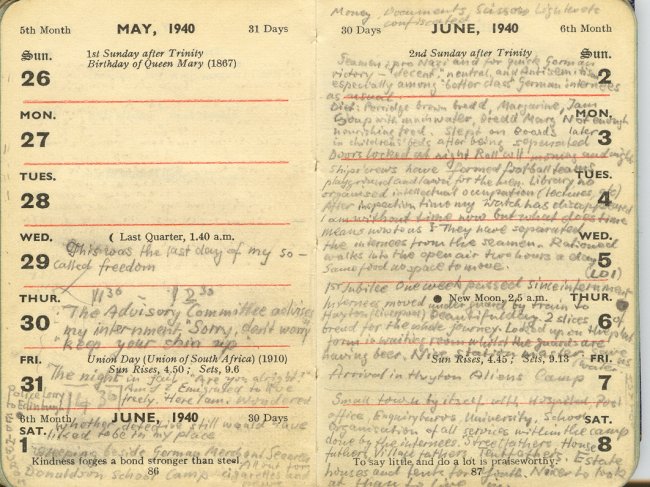 5th Month MAY, 1940 31 Days
SUN. 1st Sunday after Trinity
26 Birthday of Queen Mary (1867)
MON.
27
TUES.
28
WED. ☾ Last Quarter, 1.40 a.m.
29 This was the last day of my so-
called freedom
THUR.
30 The Advisory Committee advises
my internment "Sorry, don't worry
"keep your chin up"
FRI. Union Day (Union of South Africa) (1910)
31 Sun Rises, 4.50 ; Sets, 9.6
The night in jail. Are you alright?
freely. Here I am. Wondered
6th Month JUNE, 1940 30 Days
SAT. whether detective still would have
1 liked to be in my place
Sleeping beside German Merchant Seamen
Kindness forges a bond stronger than steel.
Donaldson School Camp cigarettes and
86
Money Documents, Scissors Lighter etc
confiscated
30 Days JUNE, 1940 6th Month
2nd Sunday after Trinity SUN.
2
Seamen: pro Nazi and for quick German
victory - "decent," neutral, and Antisemitism
especially among "better class" German internees
as usual
Diet: Porridge brown bread, Margarine, Jam
Soup with water, Bread Marg Not enough
nourishing food. Slept on Boards later
in childrens beds after being separated
MON.
3
Doors locked at night Roll call morning and night
Ships crews have formed football teams
playground and lawn for the men. Library no
organised intellectual occupation (lectures, etc)
TUES.
4
After inspection time my watch has disappeared
I am without time now but what does time
means now to us? They have separated
the internees from the seamen. Rationed
walks into the open air two hours a day
Same food no space to move.
WED.
5
1st Jubilee One week passed since internment
Internees moved under guard by train to
Huyton (Liverpool) Beautiful day 2 slices of
bread for the whole journey. Locked up on the plat
form in waiting room whilst the guards are
having beer. Nice station master gave us
water
THUR. ● New Moon, 2.5 a.m.
6
FRI. Sun Rises, 4.45 ; Sets, 9.13
7
Arrival in Huyton Aliens Camp
Small town by itself with Hospital Post
office, Enquiry buros, University, School
Organisation of all services within the camp
done by the internees. Streetfathers, House
fathers, Village fathers, Tentfathers. Estate
houses and tents for youth. Nicer to look
SAT.
8
To say little and do a lot is praiseworthy.
87